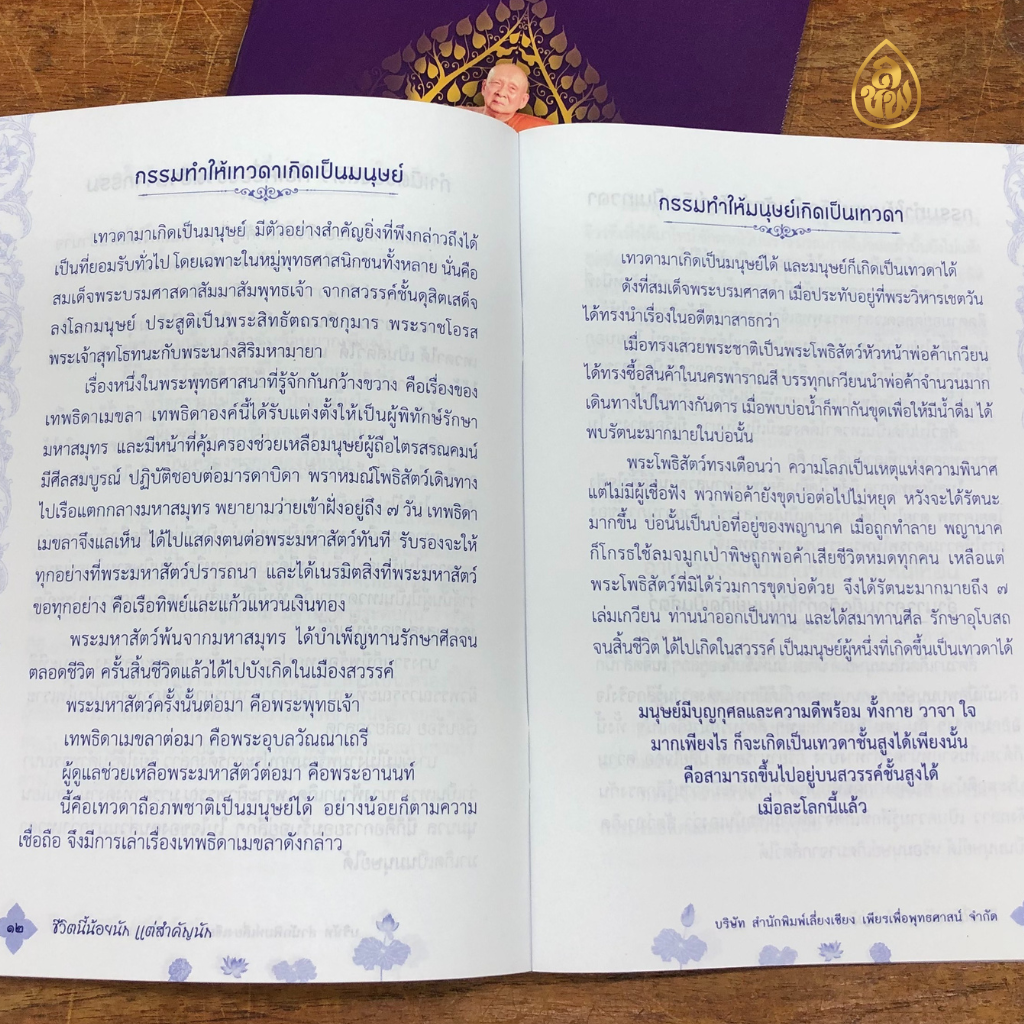 กรรมทำให้เทวดาเกิดเป็นมนุษย์
เทวดามาเกิดเป็นมนุษย์ มีตัวอย่างสำคัญยิ่งที่พึงกล่าวถึงได้
เป็นที่ยอมรับทั่วไป โดยเฉพาะในหมู่พุทธศาสนิกชนทั้งหลาย นั่นคือ
สมเด็จพระบรมศาสดาสัมมาสัมพุทธเจ้า จากสวรรค์ชั้นดุสิตเสด็จ
ลงโลกมนุษย์ ประสูติเป็นพระสิทธัตถราชกุมาร พระราชโอรส
พระเจ้าสุทโธทนะกับพระนางสิริมหามายา
เรื่องหนึ่งในพระพุทธศาสนาที่รู้จักกันกว้างขวาง คือเรื่องของ
เทพธิดาเมขลา เทพธิดาองค์นี้ได้รับแต่งตั้งให้เป็นผู้พิทักษ์รักษา
มหาสมุทร และมีหน้าที่คุ้มครองช่วยเหลือมนุษย์ผู้ถือไตรสรณคมน์
มีศีลสมบูรณ์ ปฏิบัติชอบต่อมารดาบิดา พราหมณ์โพธิสัตว์เดินทาง
ไปเรือแตกกลางมหาสมุทร พยายามว่ายเข้าฝั่งอยู่ถึง ๗ วัน เทพธิดา
เมขลาจึงแลเห็น ได้ไปแสดงตนต่อพระมหาสัตว์ทันที รับรองจะให้
ทุกอย่างที่พระมหาสัตว์ปรารถนา และได้เนรมิตสิ่งที่พระมหาสัตว์
ขอทุกอย่าง คือเรือทิพย์และแก้วแหวนเงินทอง
พระมหาสัตว์พ้นจากมหาสมุทร ได้บำเพ็ญทานรักษาศีลจน
ตลอดชีวิต ครั้นสิ้นชีวิตแล้วได้ไปบังเกิดในเมืองสวรรค์
พระมหาสัตว์ครั้งนั้นต่อมา คือพระพุทธเจ้า
เทพธิดาเมขลาต่อมา คือพระอุบลวัณณาเถรี
ผู้ดูแลช่วยเหลือพระมหาสัตว์ต่อมา คือพระอานนท์
นี้คือเทวดาถือภพชาติเป็นมนุษย์ได้ อย่างน้อยก็ตามความ
เชื่อถือ จึงมีการเล่าเรื่องเทพธิดาเมขลาดังกล่าว
๑๒ ชีวิตนี้น้อยนัก แต่สำคัญนัก
กรรมทำให้มนุษย์เกิดเป็นเทวดา
เทวดามาเกิดเป็นมนุษย์ได้ และมนุษย์ก็เกิดเป็นเทวดาได้
ดังที่สมเด็จพระบรมศาสดา เมื่อประทับอยู่ที่พระวิหารเชตวัน
ได้ทรงนำเรื่องในอดีตมาสาธกว่า
เมื่อทรงเสวยพระชาติเป็นพระโพธิสัตว์หัวหน้าพ่อค้าเกวียน
ได้ทรงซื้อสินค้าในนครพาราณสี บรรทุกเกวียนนำพ่อค้าจำนวนมาก
เดินทางไปในทางกันดาร เมื่อพบบ่อน้ำก็พากันขุดเพื่อให้มีน้ำดื่ม ได้
พบรัตนะมากมายในบ่อนั้น
พระโพธิสัตว์ทรงเตือนว่า ความโลภเป็นเหตุแห่งความพินาศ
แต่ไม่มีผู้เชื่อฟัง พวกพ่อค้ายังขุดบ่อต่อไปไม่หยุด หวังจะได้รัตนะ
มากขึ้น บ่อนั้นเป็นบ่อที่อยู่ของพญานาค เมื่อถูกทำลาย พญานาค
ก็โกรธใช้ลมจมูกเป่าพิษถูกพ่อค้าเสียชีวิตหมดทุกคน เหลือแต่
พระโพธิสัตว์ที่มิได้ร่วมการขุดบ่อด้วย จึงได้รัตนะมากมายถึง ๗
เล่มเกวียน ท่านนำออกเป็นทาน และได้สมาทานศีล รักษาอุโบสถ
จนสิ้นชีวิต ได้ไปเกิดในสวรรค์ เป็นมนุษย์ผู้หนึ่งที่เกิดขึ้นเป็นเทวดาได้
มนุษย์มีบุญกุศลและความดีพร้อม ทั้งกาย วาจา ใจ
มากเพียงไร ก็จะเกิดเป็นเทวดาชั้นสูงได้เพียงนั้น
คือสามารถขึ้นไปอยู่บนสวรรค์ชั้นสูงได้
เมื่อละโลกนี้แล้ว
บริษัท สำนักพิมพ์เลี่ยงเชียง เพียรเพื่อพุทธศาสน์ จำกัด